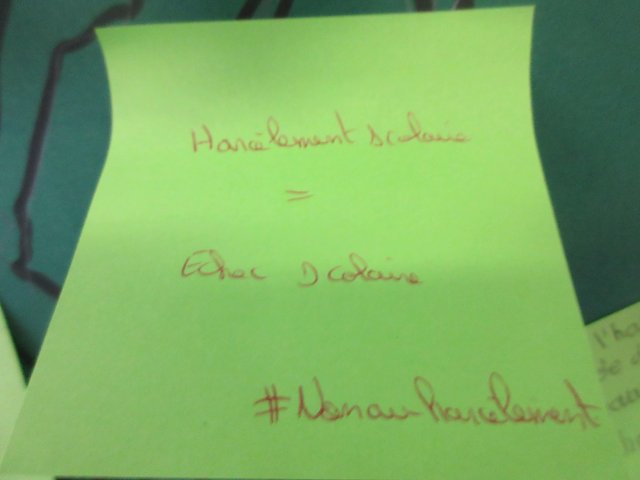 Harcèlement scolaire
=
Echec scolaire
#Nonauharcèlement